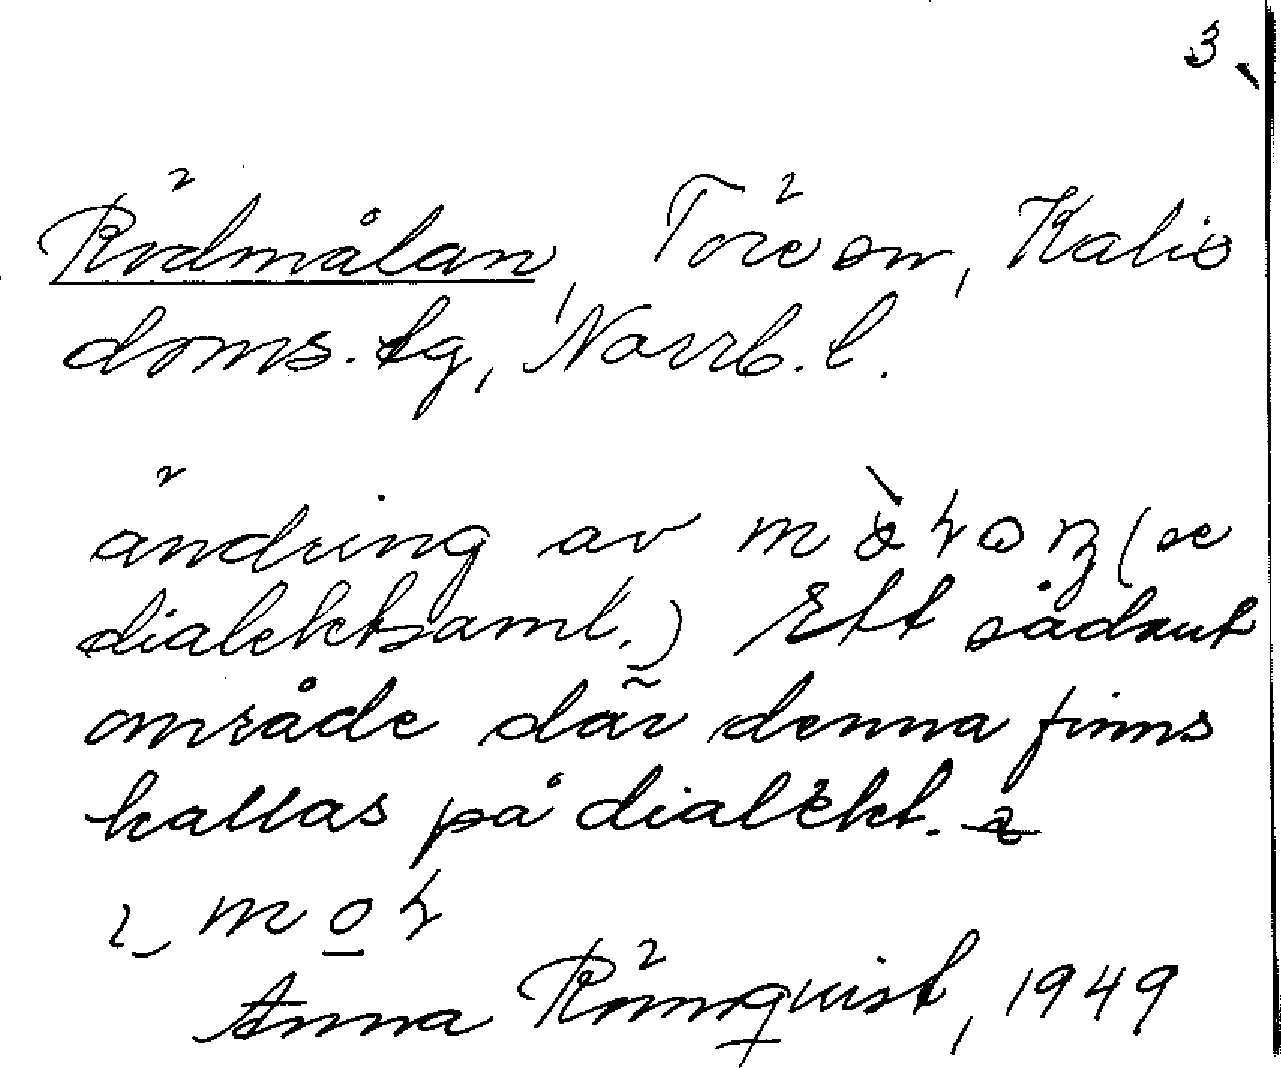 3
Rödmålan, Töre sn, Kalix
doms. tg, Norrb. l.
ändring av (se
dialektsaml.) Ett sådant
område där denna finns
kallas på dialekt.
Anna Rönnquist, 1949